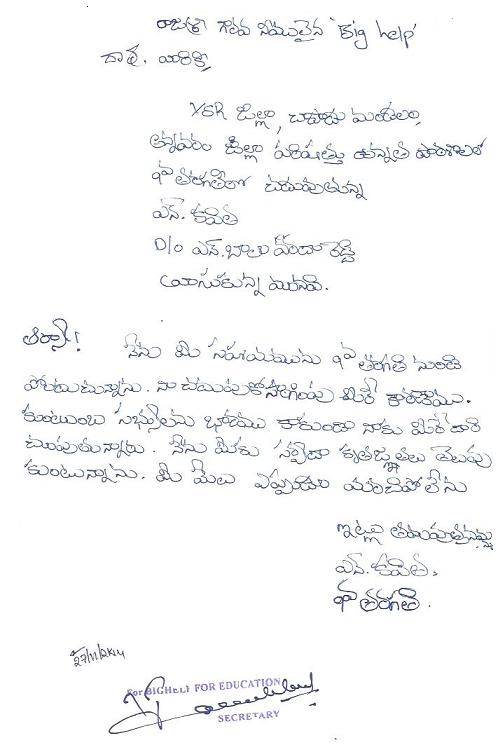 రాజశ్రీ గౌరవ నీయులైన 'Big help'
దాత, మరికి,
YSR జిల్లా, చాపాడు మండలం,
అన్నవరం జిల్లా పరిషత్తు ఉన్నత పాఠశాలలో
9వ తరగతిలో చదువుతున్న
ఎన్. కవిత
D/o ఎన్. బాల రెడ్డి
వ్రాసుకున్న మనవి.
ఆర్యా! నేను మీ సహాయమును 9వ తరగతి నుండి
పొందుచున్నాను. నా చదువుకోసాగింపు మీరే కారణము.
కుటుంబ సభ్యులకు భారము కాకుండా నాకు మీరే దారి
చూపుతున్నారు. నేను మీకు సర్వదా కృతజ్ఞతలు తెలుపు
కుంటున్నాను. మీ మేలు ఎప్పుడూ మరచిపోలేను
ఇట్లు తమపుత్రసమ
ఎన్. కవిత,
9వ తరగతి.
27/11/2K14
For BIGHELP FOR EDUCATION
SECRETARY